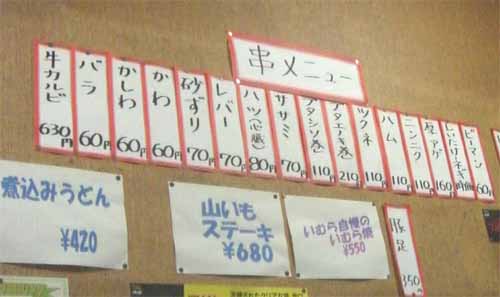 串メニュー
牛カルビ 630円
バラ 60円
かしわ 60円
かわ 60円
砂ずり 70円
レバー 70円
ハツ(心臓) 80円
ササミ 70円
ブタシソ巻 110円
ブタエノキ巻 210円
ツクネ 110円
ハム 110円
ニンニク 110円
厚アゲ 160円
しいたけ
ピーマン 60円
煮込みうどん
¥420
山いも
ステーキ
¥680
いむら自慢の
いむら焼
¥550
豚足 350